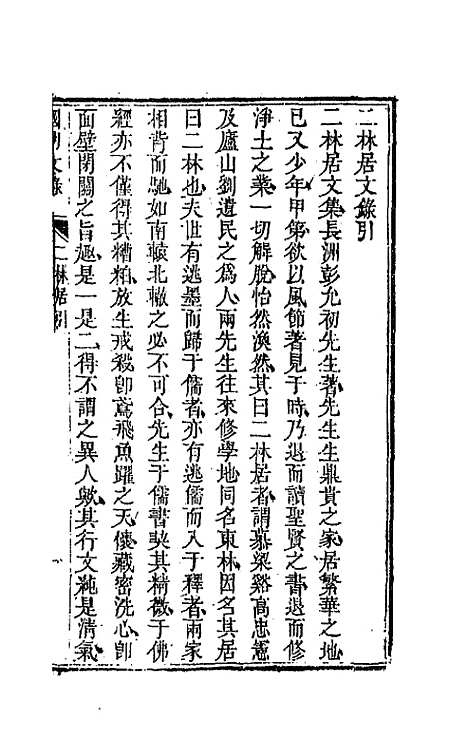 二林居文錄引
二林居文集長洲彭允初先生著先生生鼎貴之家居繁華之地
已又少年甲第欲以風節著見于時乃退而讀聖賢之書退而修
淨土之業一切解脫怡然渙然其曰二林居者謂慕梁谿高忠憲
及廬山劉遺民之爲人兩先生往來修學地同名東林因名其居
曰二林也夫世有逃墨而歸于儒者亦有逃儒而入于釋者兩家
相背而馳如南轅北轍之必不可合先生于儒書契其精微于佛
經亦不僅得其糟粕放生戒殺卽鳶飛魚躍之天倪藏密洗心卽
面壁閉關之旨趣是一是二得不謂之異人歟其行文純是清氣
國朝文錄
二林居引